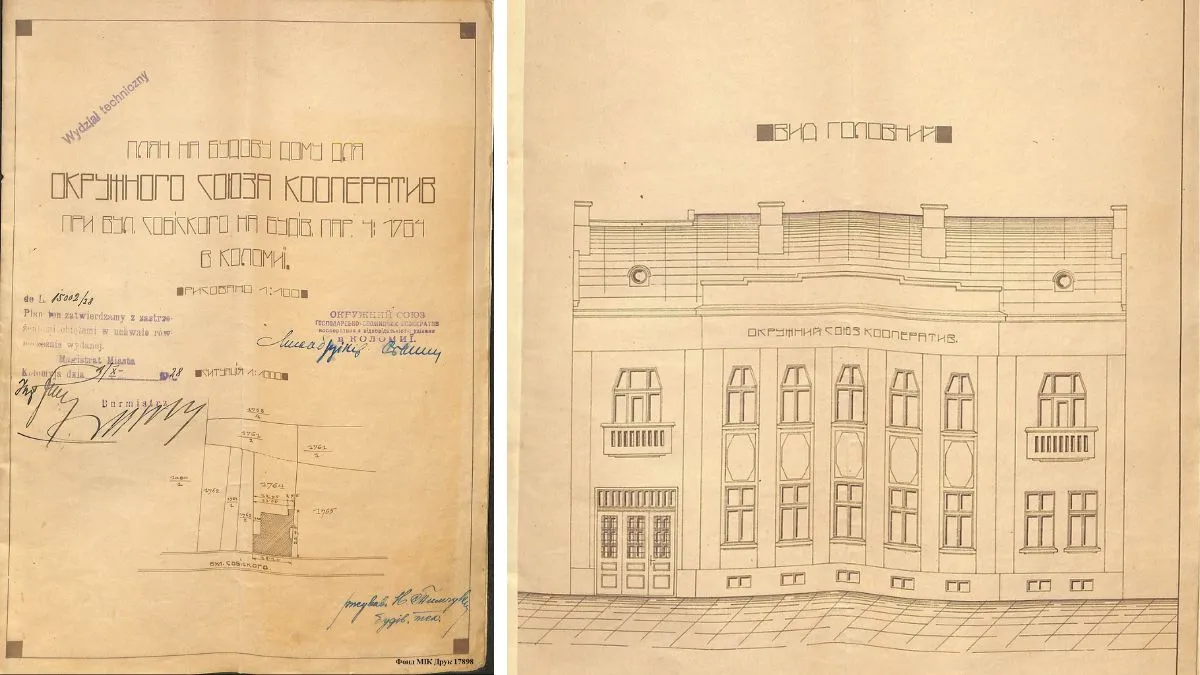 Wydział techniczny
ПЛЯН НА БУДОВУ ДОМУ ДЛЯ
ОКРУЖНОГО СОЮЗА КООПЕРАТИВ
ПРИ ВУЛ. СОБІСКОГО НА БУДІВ. ПАР. Ч: 1764
В КОЛОМИЇ.
РИСОВАНО 1:100
do L. 15002/28
Plan ten zatwierdzamy z zastrze-
w uchwale rów-
wydanej.
Magistrat Miasta
Kołomyja dnia 28
Burmistrz
ОКРУЖНИЙ СОЮЗ
ГОСПОДАРСЬКО-СПОЖИВЧИХ КООПЕРАТИВ
В КОЛОМИЇ.
СИТУАЦІЯ 1:1000
1758
1761
2
1761
1
1762
1764
1765
ВУЛ. СОБІСКОГО.
будів. тех.
Фонд МІК Друк 17898
ВИД ГОЛОВНИЙ
ОКРУЖНИЙ СОЮЗ КООПЕРАТИВ.